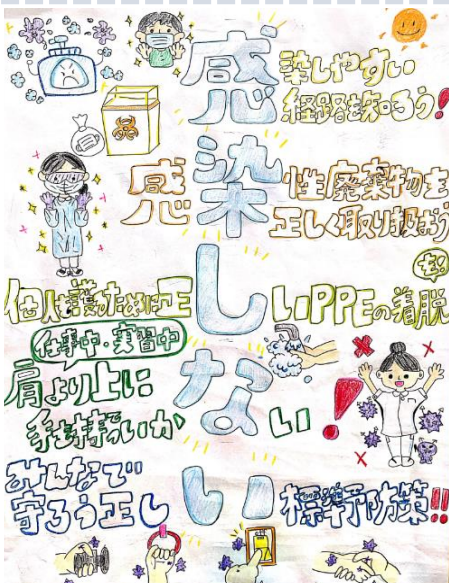 感染しやすい
経路を知ろう!
感染性廃棄物を
正しく取り扱おう
個人を護るために正しいPPEの着脱を!
仕事中・実習中
肩より上に
手を持っていかない!
みんなで
守ろう正しい標準予防策!!